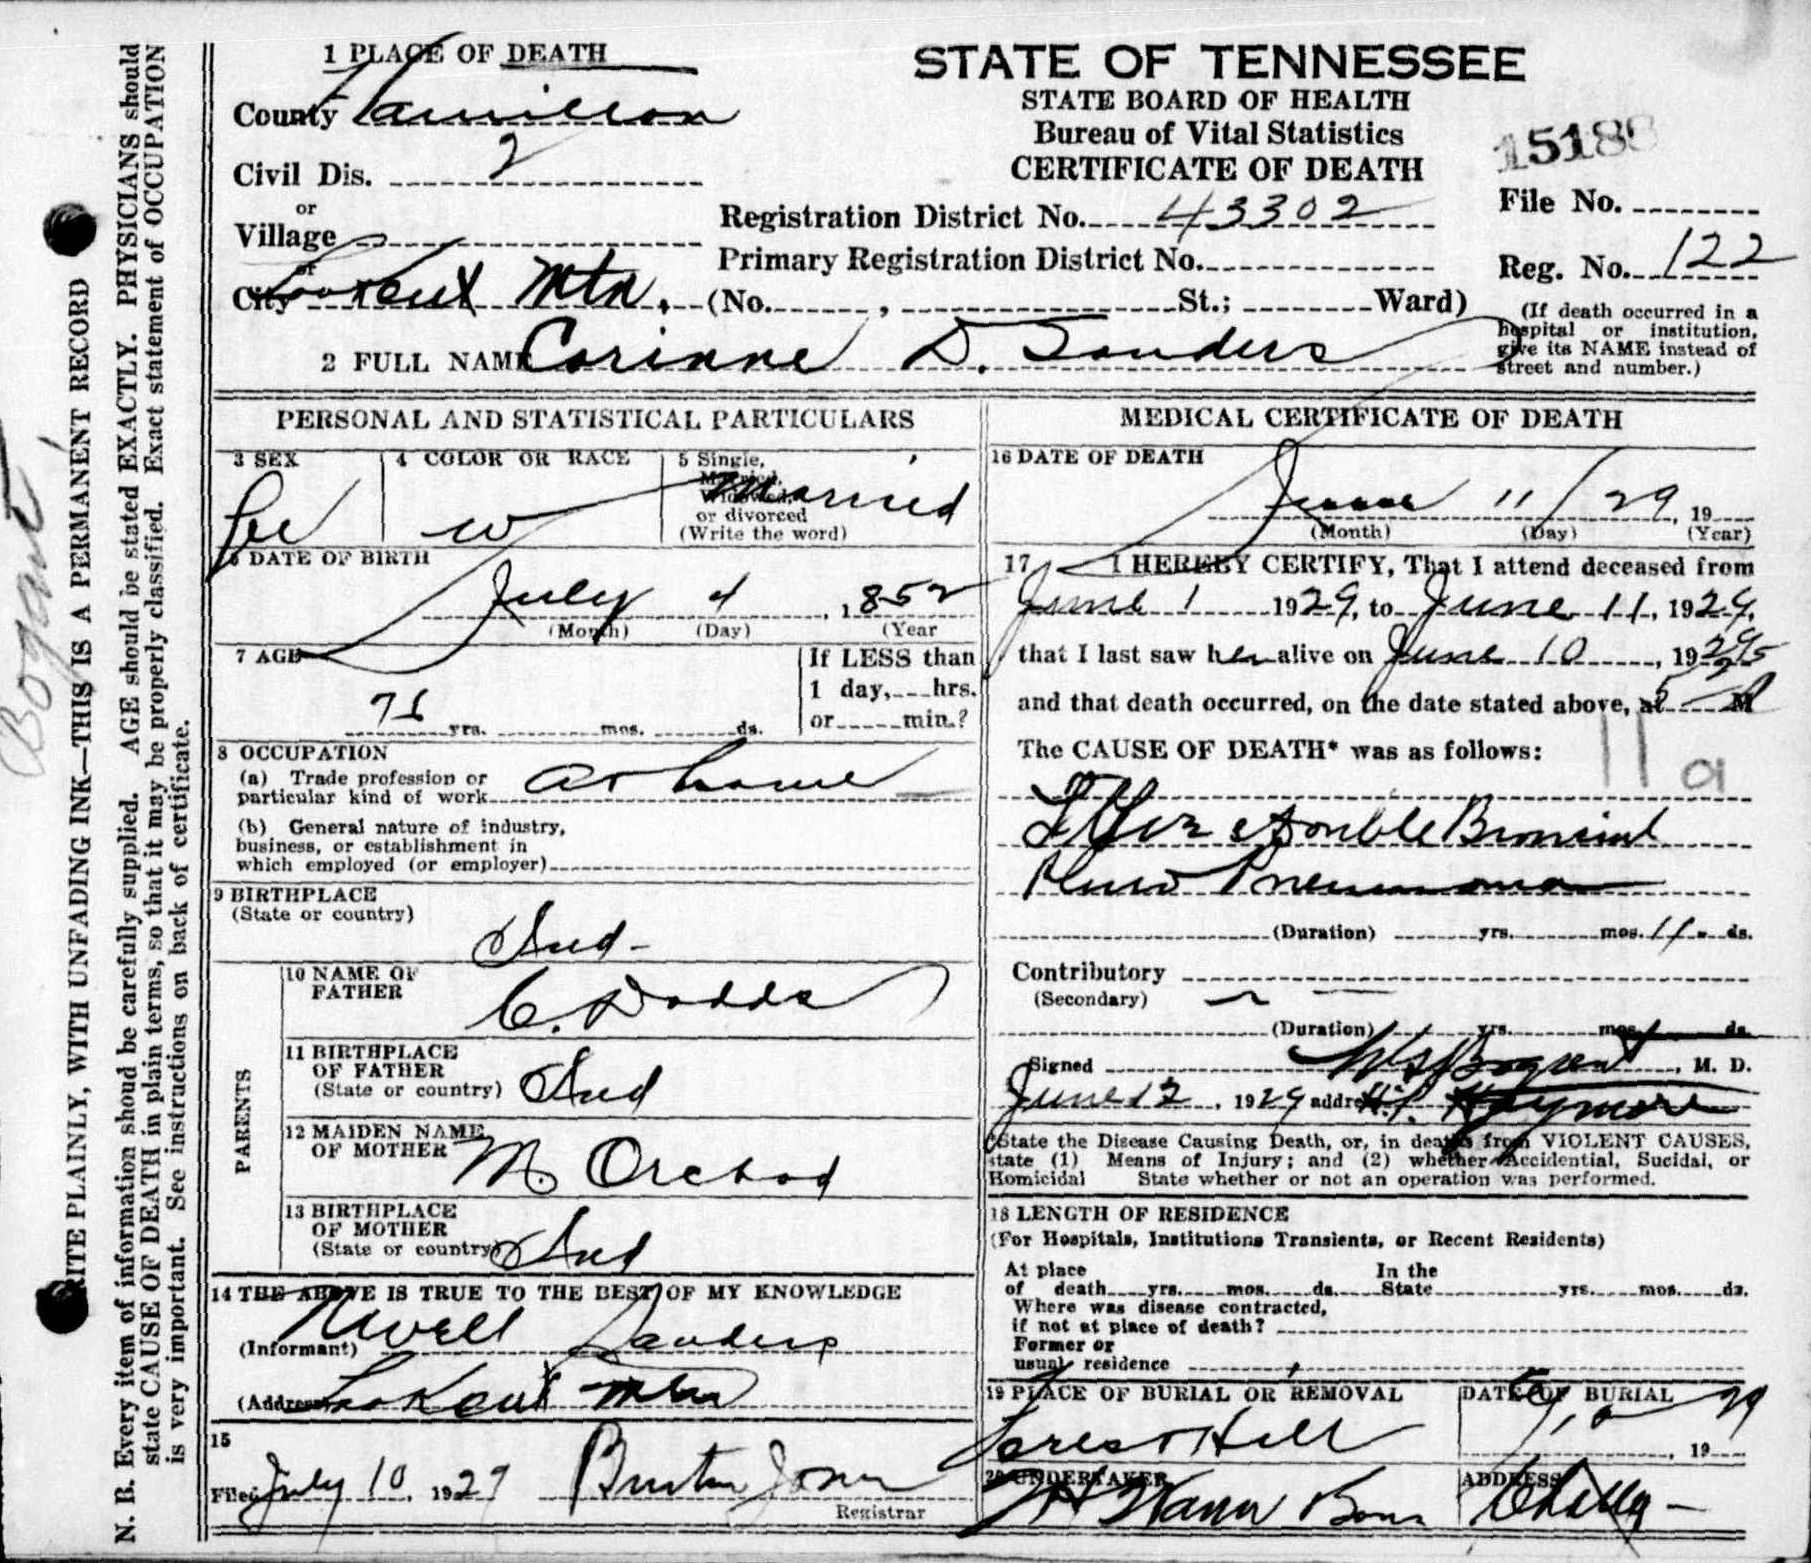 1 PLACE OF DEATH
County Hamilton
Civil Dis. 2
or
Village
or
City Lookout Mtn. (No. , St.; Ward)
STATE OF TENNESSEE
STATE BOARD OF HEALTH
Bureau of Vital Statistics
CERTIFICATE OF DEATH
Registration District No. 43302
Primary Registration District No.
File No.
Reg. No. 122
(If death occurred in a
hospital or institution,
give its NAME instead of
street and number.)
2 FULL NAME Corinne D. Sanders
PERSONAL AND STATISTICAL PARTICULARS
3 SEX
4 COLOR OR RACE W
5 Single,
Married,
Widowed,
or divorced
(Write the word)
Married
6 DATE OF BIRTH
July 4, 1852
(Month) (Day) (Year
7 AGE
yrs. mos. ds.
If LESS than
1 day, hrs.
or min.?
8 OCCUPATION
(a) Trade profession or
particular kind of work at home
(b) General nature of industry,
business, or establishment in
which employed (or employer)
9 BIRTHPLACE
(State or country)
Ind-
PARENTS
10 NAME OF
FATHER
C. Dodds
11 BIRTHPLACE
OF FATHER
(State or country)
Ind
12 MAIDEN NAME
OF MOTHER
M. Orchod
13 BIRTHPLACE
OF MOTHER
(State or country)
Ind
14 THE ABOVE IS TRUE TO THE BEST OF MY KNOWLEDGE
(Informant) Newell Sanders
(Address) Lookout Mtn
15
Filed July 10, 1929 Burton Jones
Registrar
MEDICAL CERTIFICATE OF DEATH
16 DATE OF DEATH
June 11/29, 19
(Month) (Day) (Year)
17 I HEREBY CERTIFY, That I attend deceased from
June 1 1929, to June 11, 1929,
that I last saw her alive on June 10, 1929
and that death occurred, on the date stated above, at M
The CAUSE OF DEATH* was as follows:
11 a
Double
Pneumonia
(Duration) yrs. mos. 11 ds.
Contributory
(Secondary)
(Duration) yrs. mos. ds.
Signed Bogart, M. D.
June 12, 1929 address
*State the Disease Causing Death, or, in deaths from VIOLENT CAUSES,
state (1) Means of Injury; and (2) whether Accidential, Sucidal, or
Homicidal State whether or not an operation was performed.
18 LENGTH OF RESIDENCE
(For Hospitals, Institutions Transients, or Recent Residents)
At place In the
of death yrs. mos. ds. State yrs. mos. ds.
Where was disease contracted,
if not at place of death?
Former or
usual residence
19 PLACE OF BURIAL OR REMOVAL
Forest Hill
DATE OF BURIAL
, 19
20 UNDERTAKER
Wann Bros
ADDRESS
Chatta-
N. B. Every item of information shoud be carefully supplied. AGE should be stated EXACTLY. PHYSICIANS should
state CAUSE OF DEATH in plain terms, so that it may be properly classified. Exact statement of OCCUPATION
is very important. See instructions on back of certificate.
RITE PLAINLY, WITH UNFADING INK—THIS IS A PERMANENT RECORD
Bogart